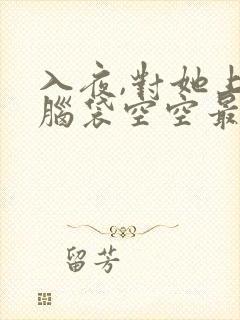 入夜,對她上
腦袋空空最
留芳